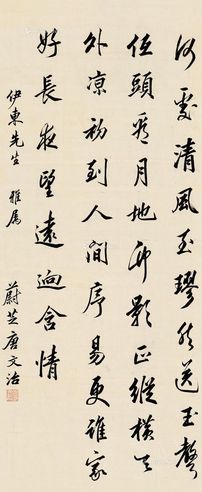 何處清風至璆然送玉聲
低頭看月地卧影正縱橫天
外凉初到人間序易更誰家
好長夜望遠迥含情
伊東先生 雅属
蔚芝唐文治